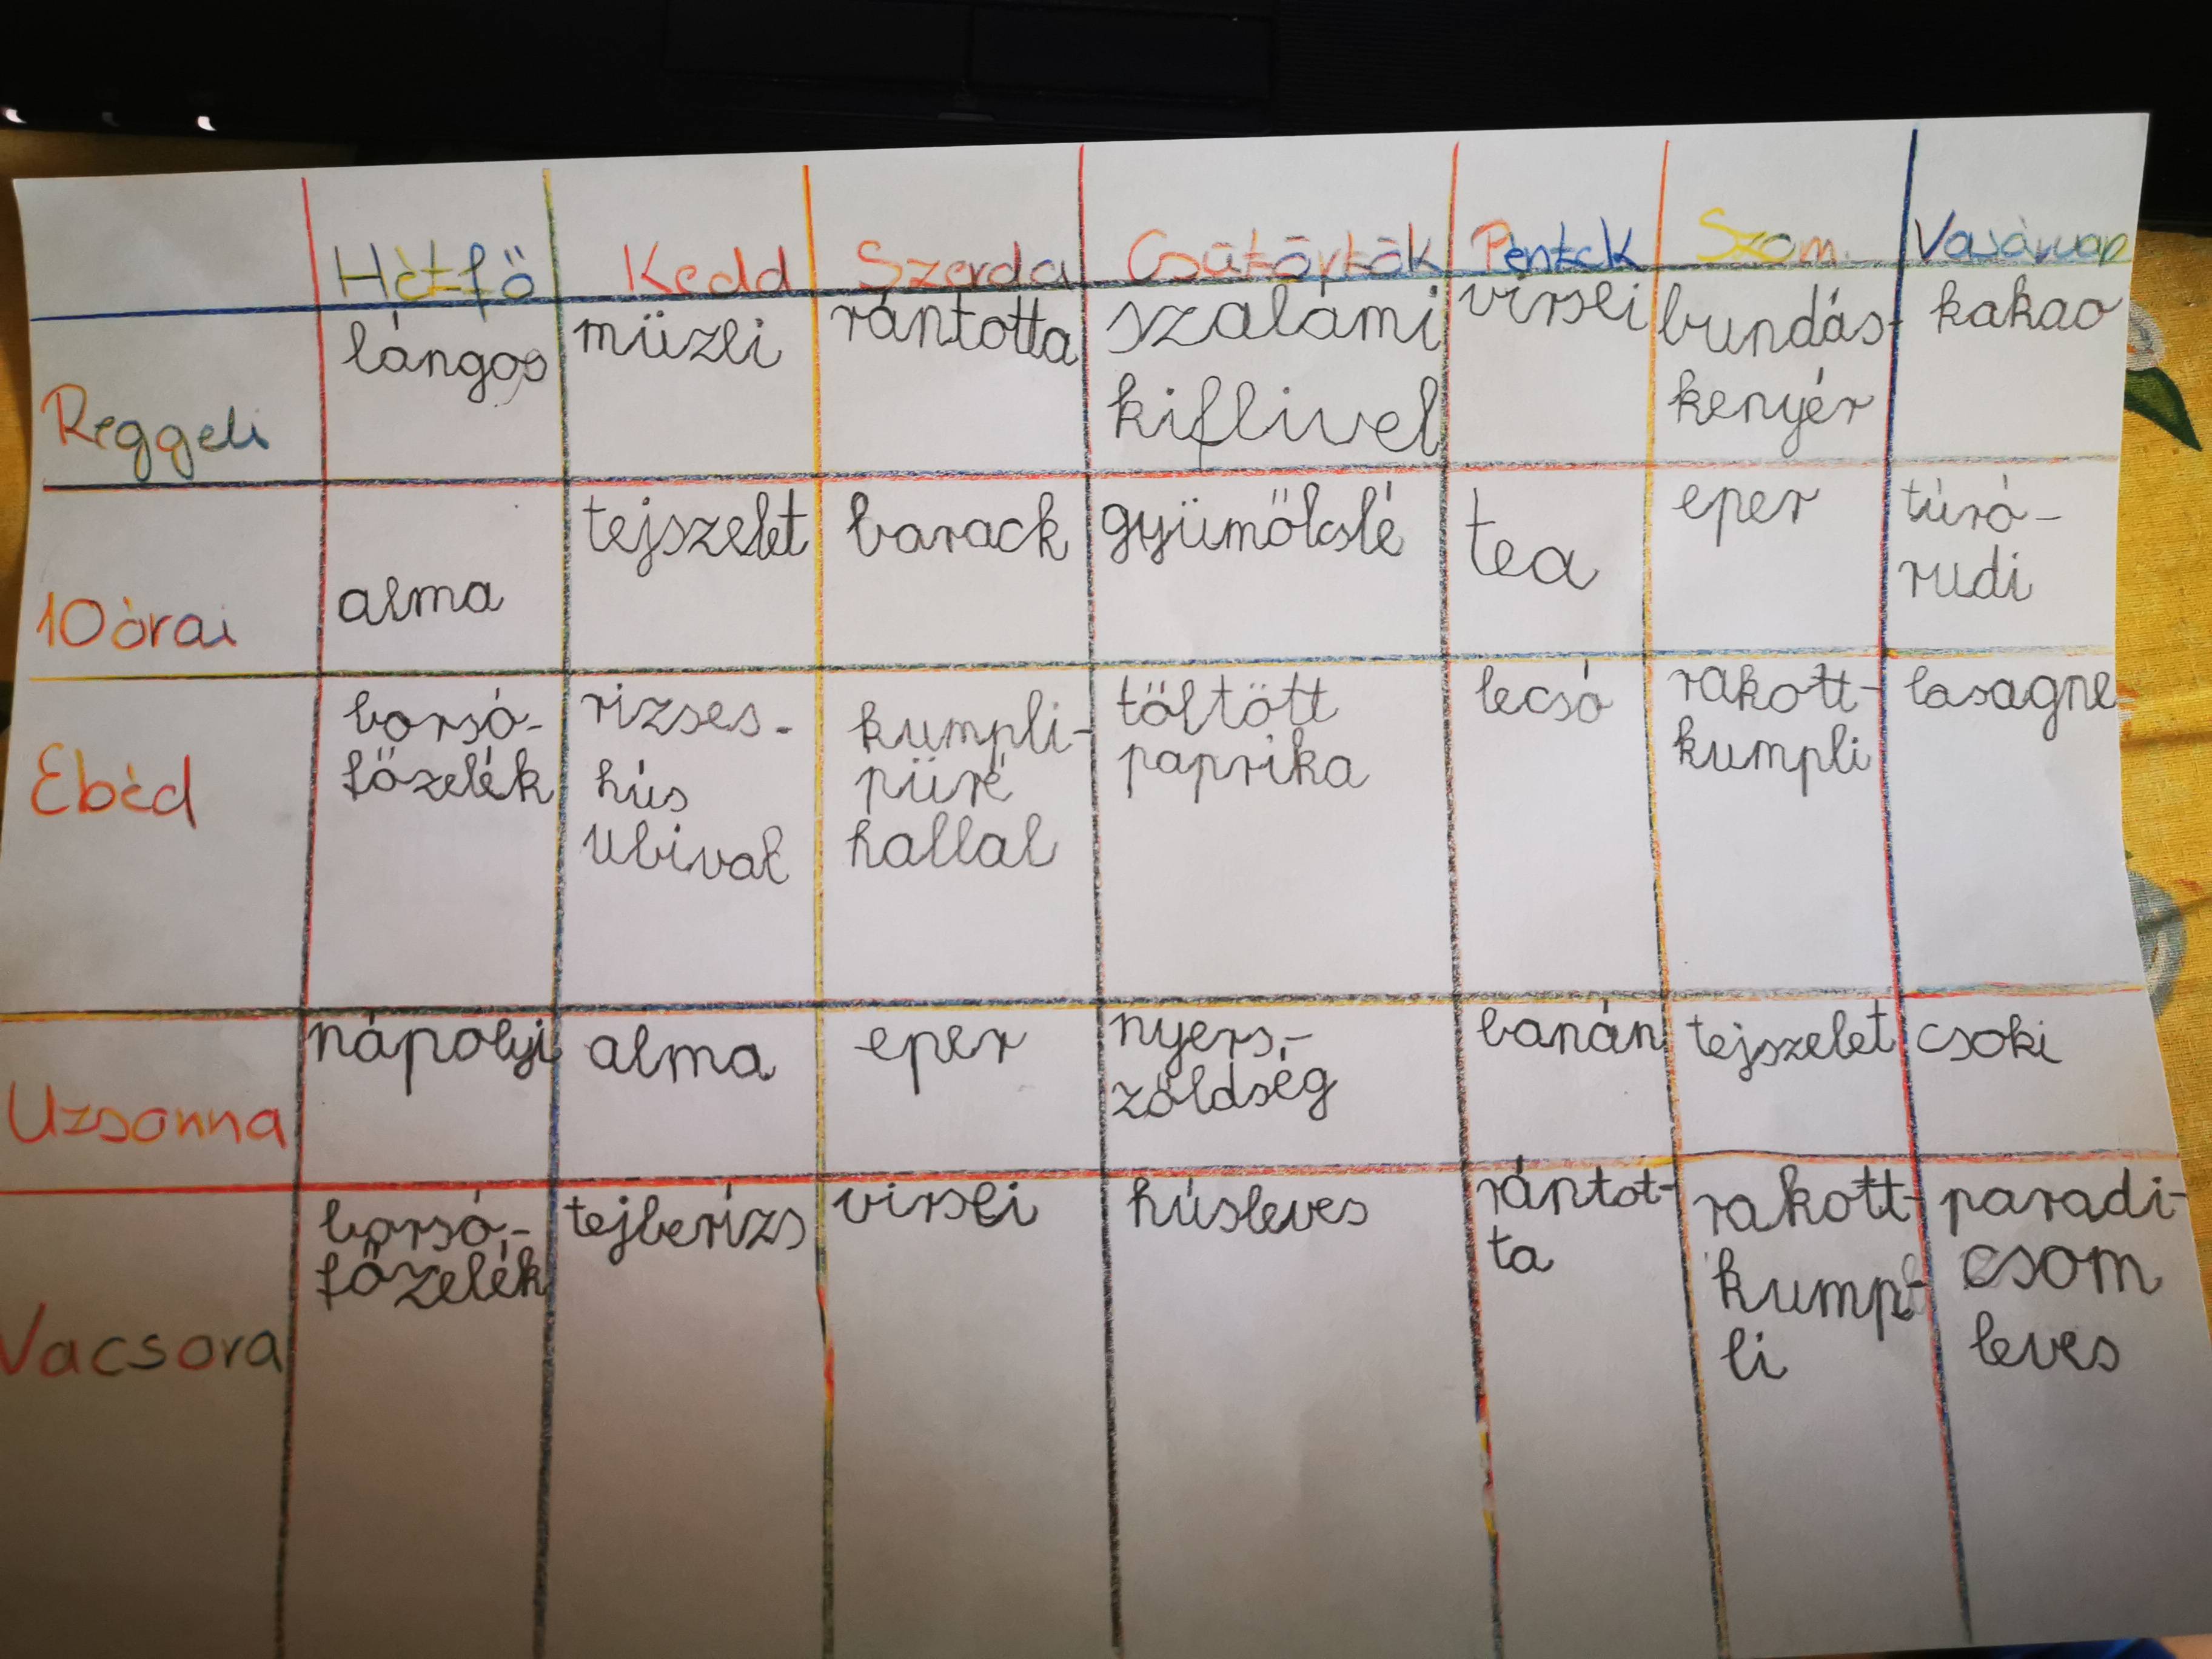 Hétfő Kedd Szerda Csütörtök Péntek Szom. Vasárnap
Reggeli
lángos
müzli
rántotta
szalámi
kiflivel
virsli
bundás-
kenyér
kakao
10órai
alma
tejszelet
barack
gyümölcslé
tea
eper
túró-
rudi
Ebéd
borsó-
főzelék
rizses-
hús
Ubival
kumpli-
püré
hallal
töltött
paprika
lecsó
rakott-
kumpli
lasagne
Uzsonna
nápolyi
alma
eper
nyers-
zöldség
banán
tejszelet
csoki
Vacsora
borsó-
főzelék
tejberizs
virsli
húsleves
rántot-
ta
rakott-
kump-
li
paradi-
csom
leves